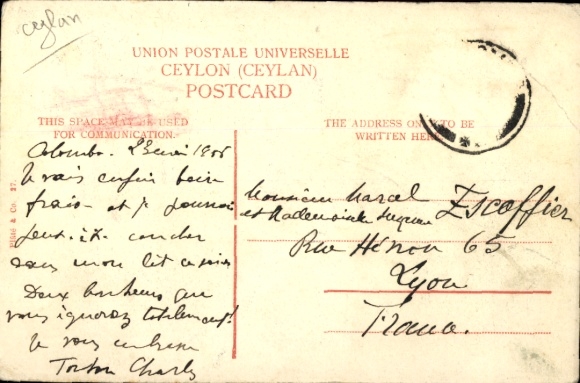 ceylan
UNION POSTALE UNIVERSELLE
CEYLON (CEYLAN)
POSTCARD
THIS SPACE MAY BE USED
FOR COMMUNICATION.
THE ADDRESS ONLY TO BE
WRITTEN HERE
Plâté & Co. 27.
Colombo. 1906
Je vais enfin boire
frais et je pourrai
peut-être coucher
dans mon lit ce soir
Deux bonheurs que
vous ignorez totalement!
Je vous embrasse
Charles
Monsieur Marcel Escoffier
et Mademoiselle
Rue Hénon 65
Lyon
France.